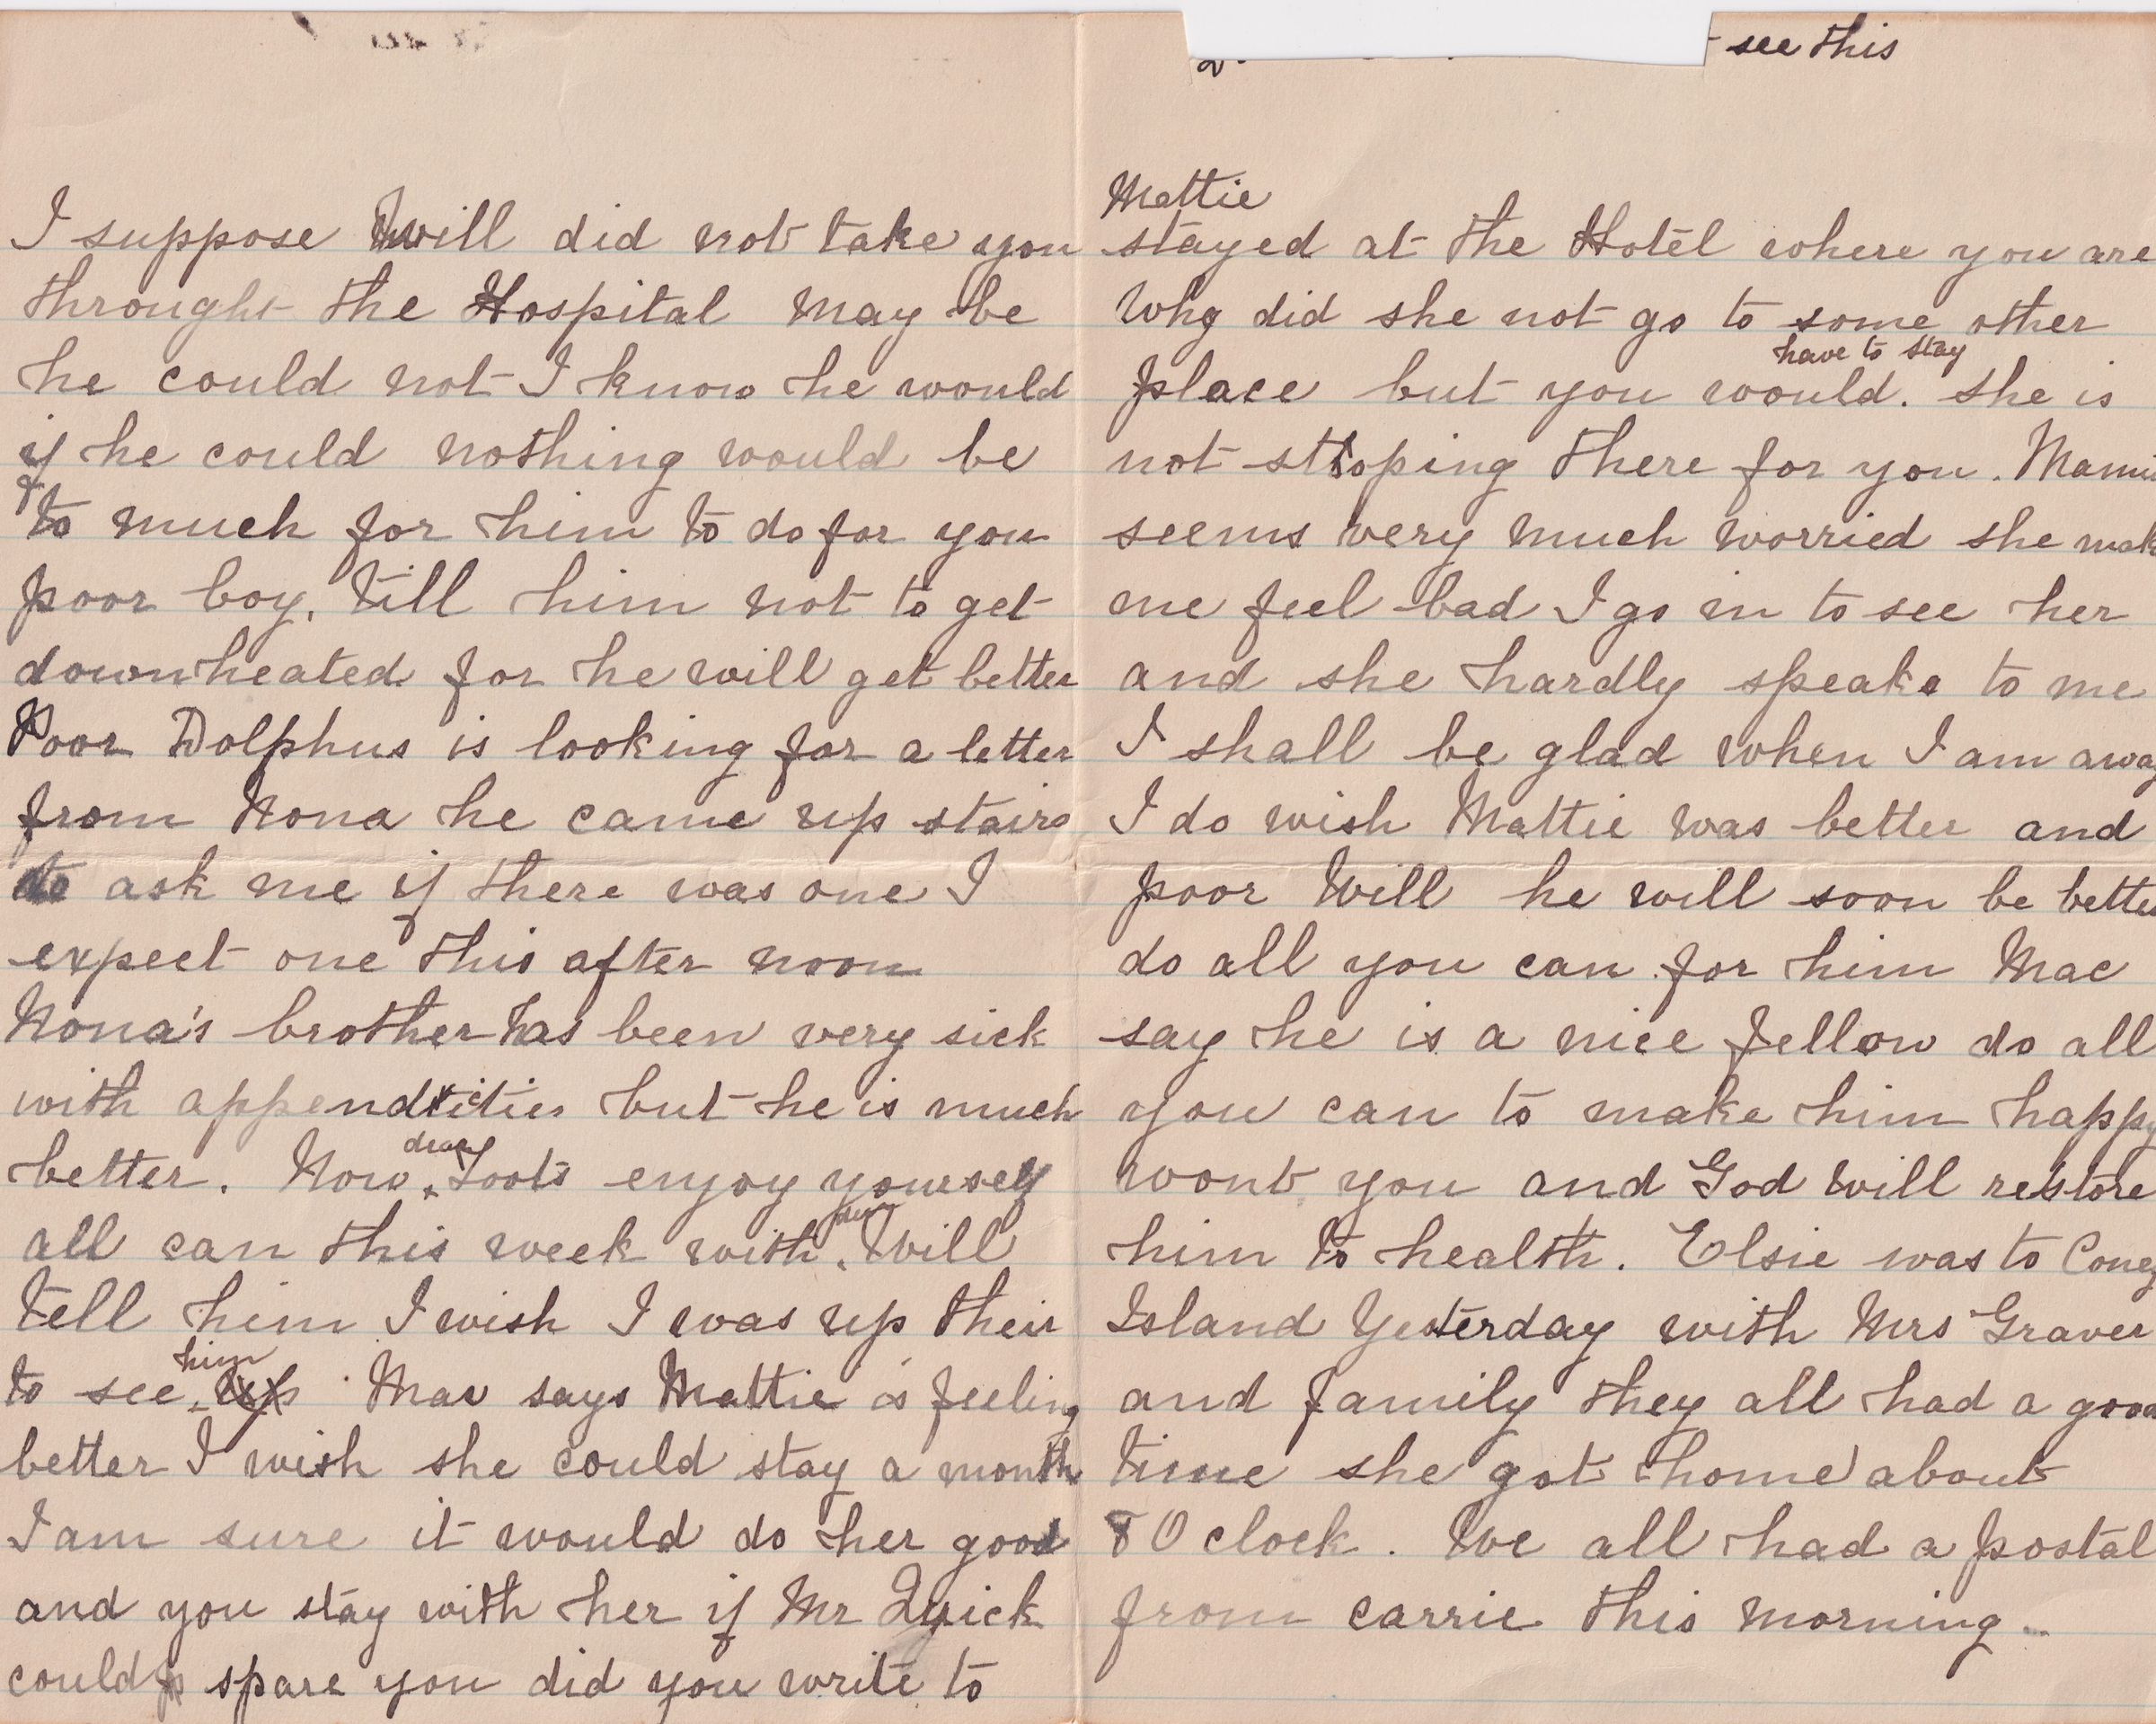 I suppose Will did not take you
throught the Hospital may be
he could not I know he would
if he could nothing would be
to much for him to do for you
poor boy, till him not to get
downheated for he will get better
Poor Dolphus is looking for a letter
from Nona he came up stairs
to ask me if there was one I
expect one this after noon
Nona's brother has been very sick
with appendicities but he is much
better. Now dear Toots enjoy yourself
all can this week with dear Will
tell him I wish I was up their
to see him Mac says Mattie is feeling
better I wish she could stay a month
I am sure it would do her good
and you stay with her if Mr Quick
could spare you did you write to
see this
Mattie
stayed at the Hotel where you are
Why did she not go to some other
place but you would have to stay. She is
not stoping there for you. Mamie
seems very much worried she make
me feel bad I go in to see her
and she hardly speaks to me
I shall be glad when I am away
I do wish Mattie was better and
poor Will he will soon be better
do all you can for him Mac
say he is a nice fellow do all
you can to make him happy
wont you and God will restore
him to health. Elsie was to Coney
Island Yesterday with Mrs Graver
and family they all had a good
time she got home about
8 O clock. We all had a postal
from carrie this morning